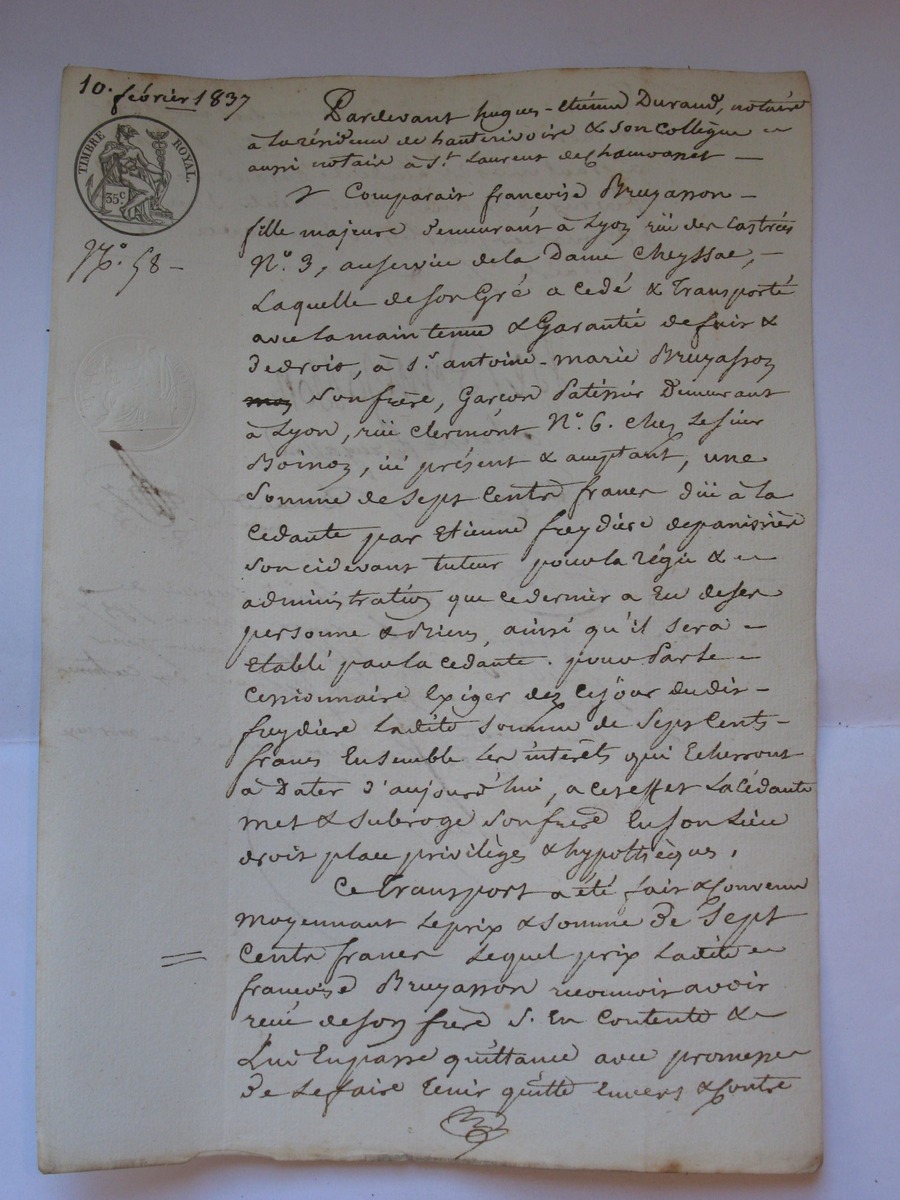 10. février 1837
TIMBRE ROYAL.
35 C
N.o 58 -
Pardevant hugues-étiénne Durand, notaire
à la résidence de hauterivoire & son Collègue
aussi notaire à S.t Laurent de Chamousset -
Comparait françoise Bruyasson -
fille majeure demeurant à Lyon rüe des Castriés
N.o 3, au service de la Dame Cheyssac, -
Laquelle de son Gré a cedé & transporté
avec la maintenue & Garantié de fait &
de droit, à S.r antoine-marie Bruyasson
son frère, Garçon Patissier Demeurant
à Lyon, rüe Clermont N.o 6. chez le sieur
Boinon, ici présent & acceptant, une
somme de sept Cents francs düe à la
Cedante par Etienne freydière de panissière
son cidevant tuteur pour la régie & -
administration que ce dernier a Eu de ses
personne & Biens, ainsi qu'il sera -
Etabli par la cedante. pour Par le -
Cessionnaire Exiger dez ce jour dudit -
freydière ladite somme de Sept Cents -
francs Ensemble les intérêts qui Echerront
à Dater d'aujourd'hui, a cet effet La Cédante
met & subroge son frère En son Lieu
droit place privilèges & hypothèques.
Ce transport a été fait & Convenu
moyennant le prix & somme de Sept
Cents francs Lequel prix Ladite
francoise Bruyasson reconnoit avoir
reçu de son frère S. En Contente &
Lui En passe quittance avec promesse
de le faire tenir quitte Envers & Contre